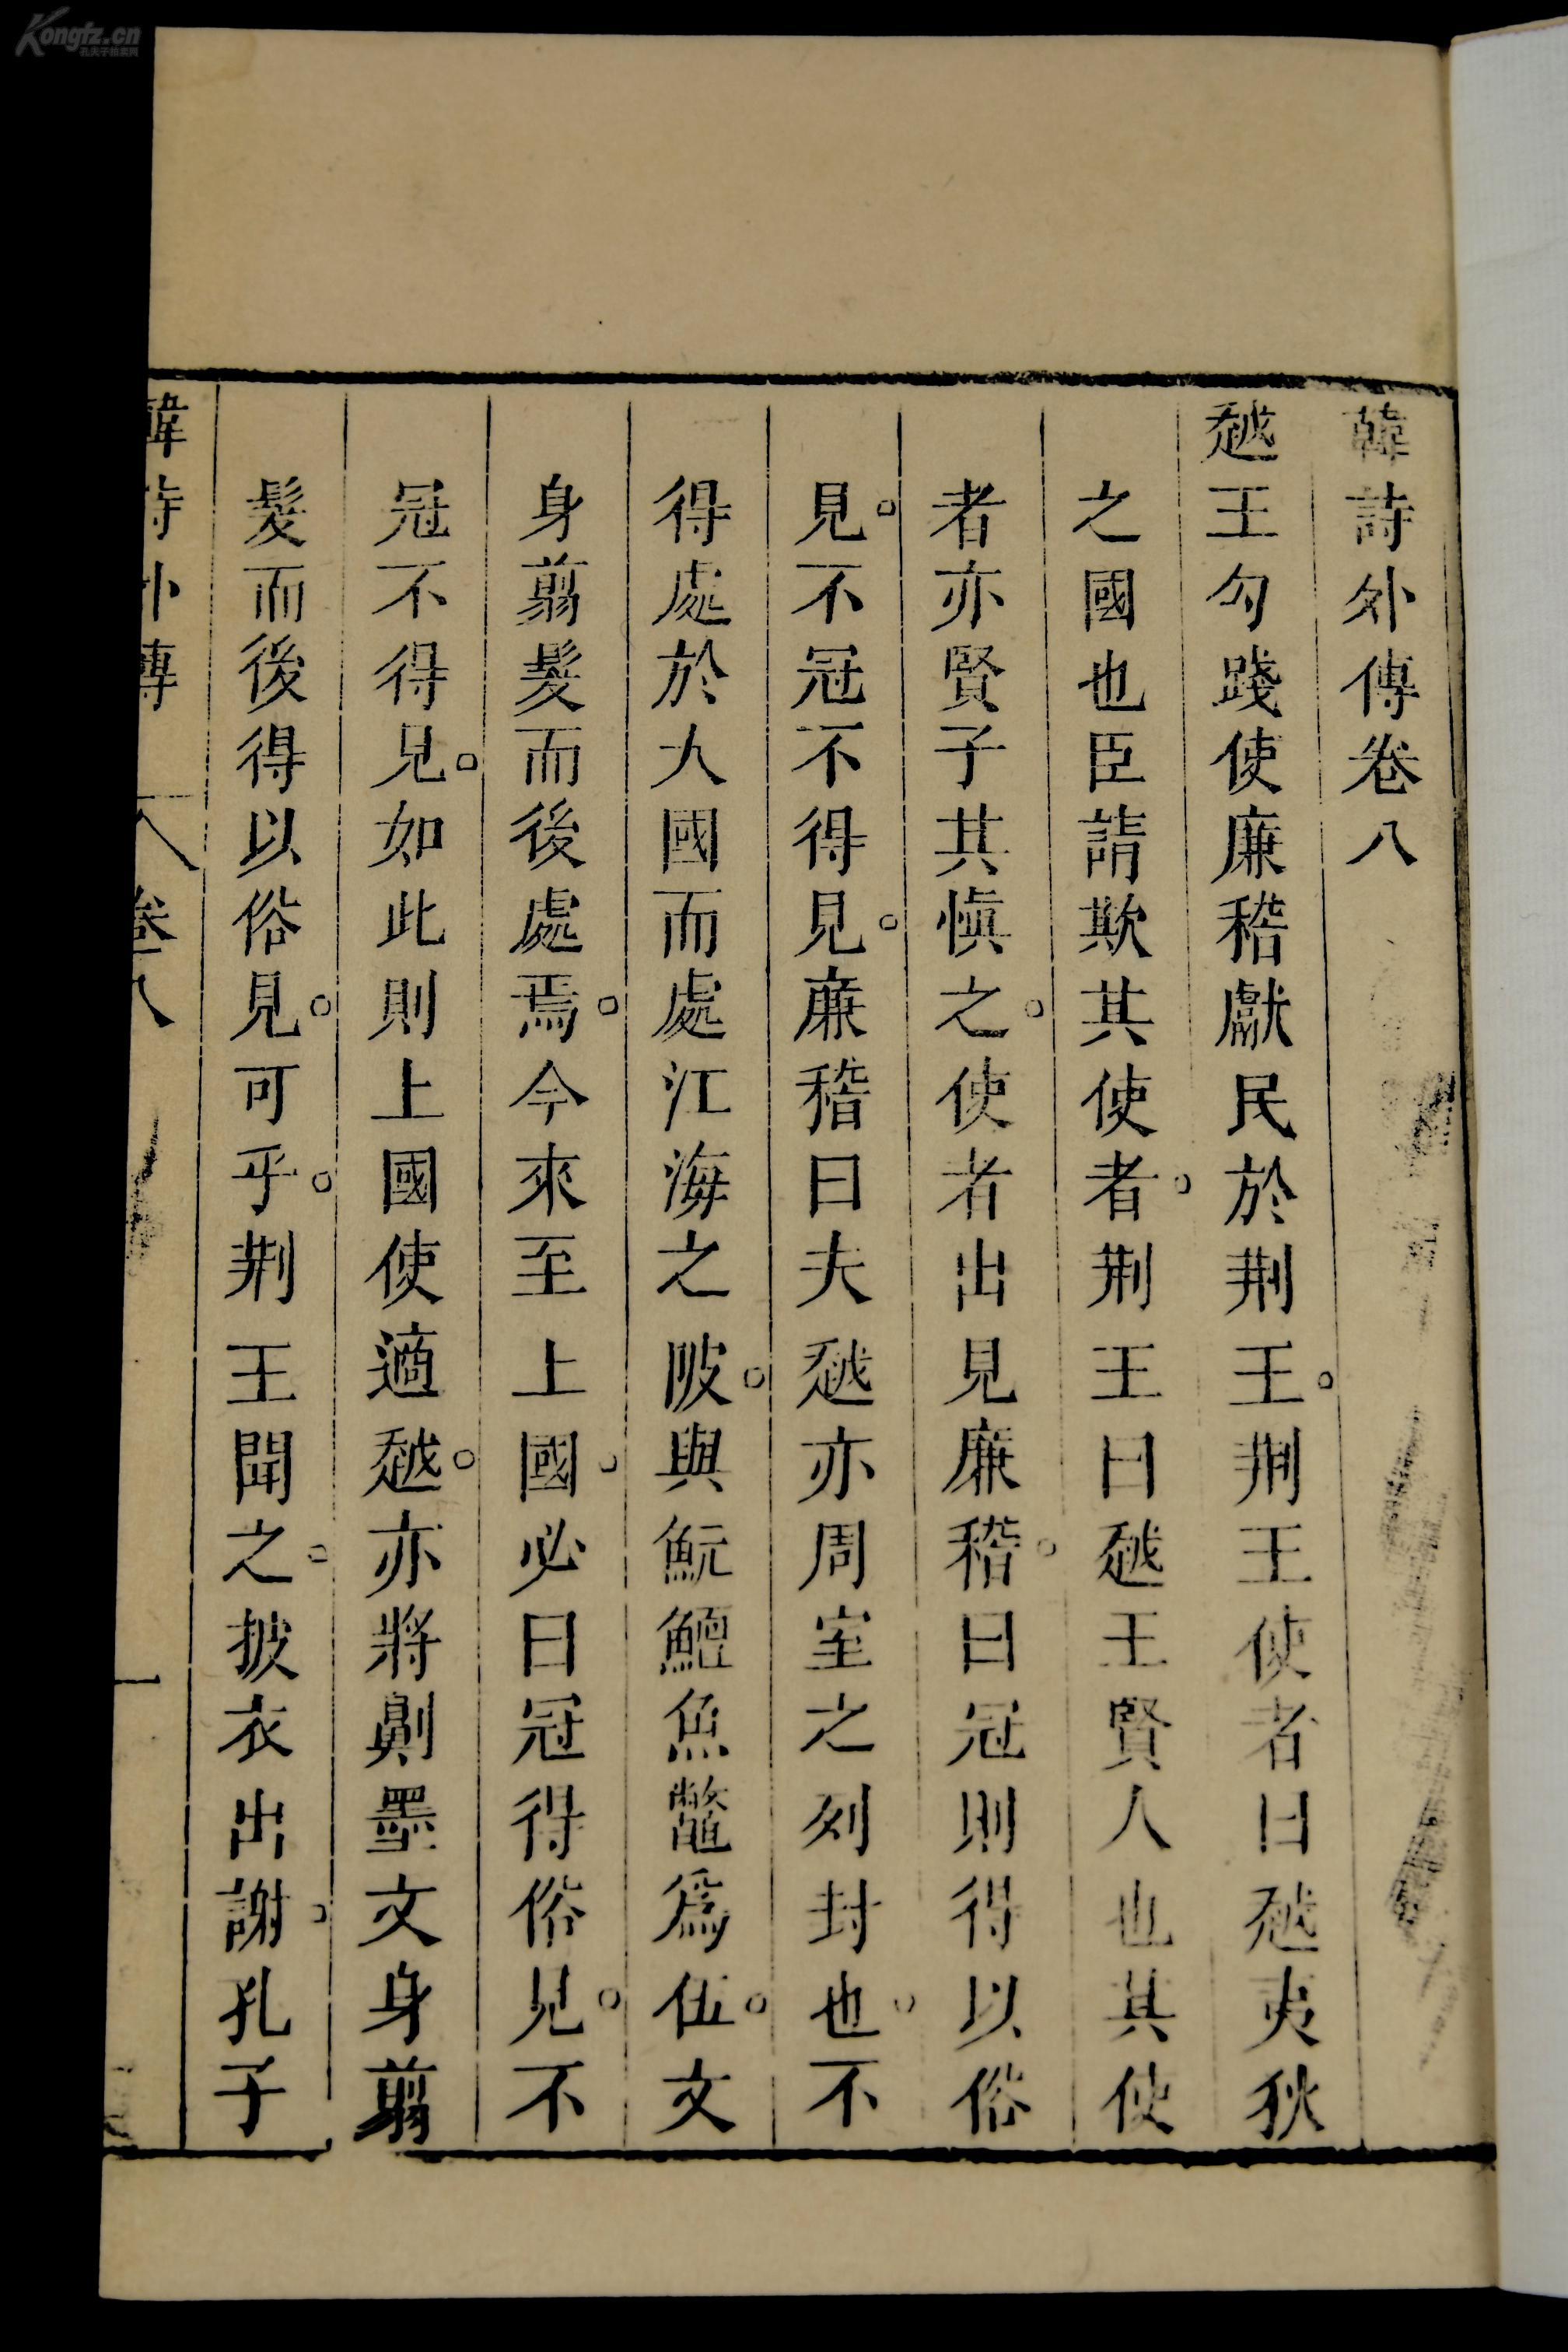 韓詩外傳卷八
越王勾踐使廉稽獻民於荆王。荆王使者曰越夷狄
之國也臣請欺其使者。荆王曰越王賢人也其使
者亦賢子其慎之。使者出見廉稽。曰冠則得以俗
見。不冠不得見。廉稽曰夫越亦周室之列封也。不
得處於大國而處江海之陂。與魭鱣魚鼈爲伍。文
身翦髮而後處焉。今來至上國。必曰冠得俗見。不
冠不得見。如此則上國使適越。亦將劓墨文身翦
髮而後得以俗見。可乎。荆王聞之。披衣出謝。孔子
韓詩外傳 卷八 一
Kongfz.cn
孔夫子拍卖网